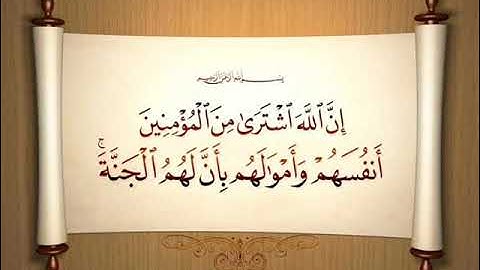 بسم الله الرحمن الرحيم
إِنَّ ٱللَّهَ ٱشْتَرَىٰ مِنَ ٱلْمُؤْمِنِينَ
أَنفُسَهُمْ وَأَمْوَٰلَهُم بِأَنَّ لَهُمُ ٱلْجَنَّةَ ۚ